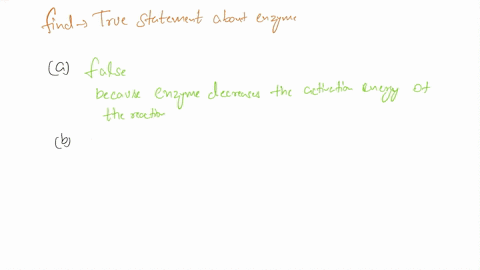 find → True statement about enzyme
(a) false
because enzyme decreases the activation energy of
the reaction
(b)